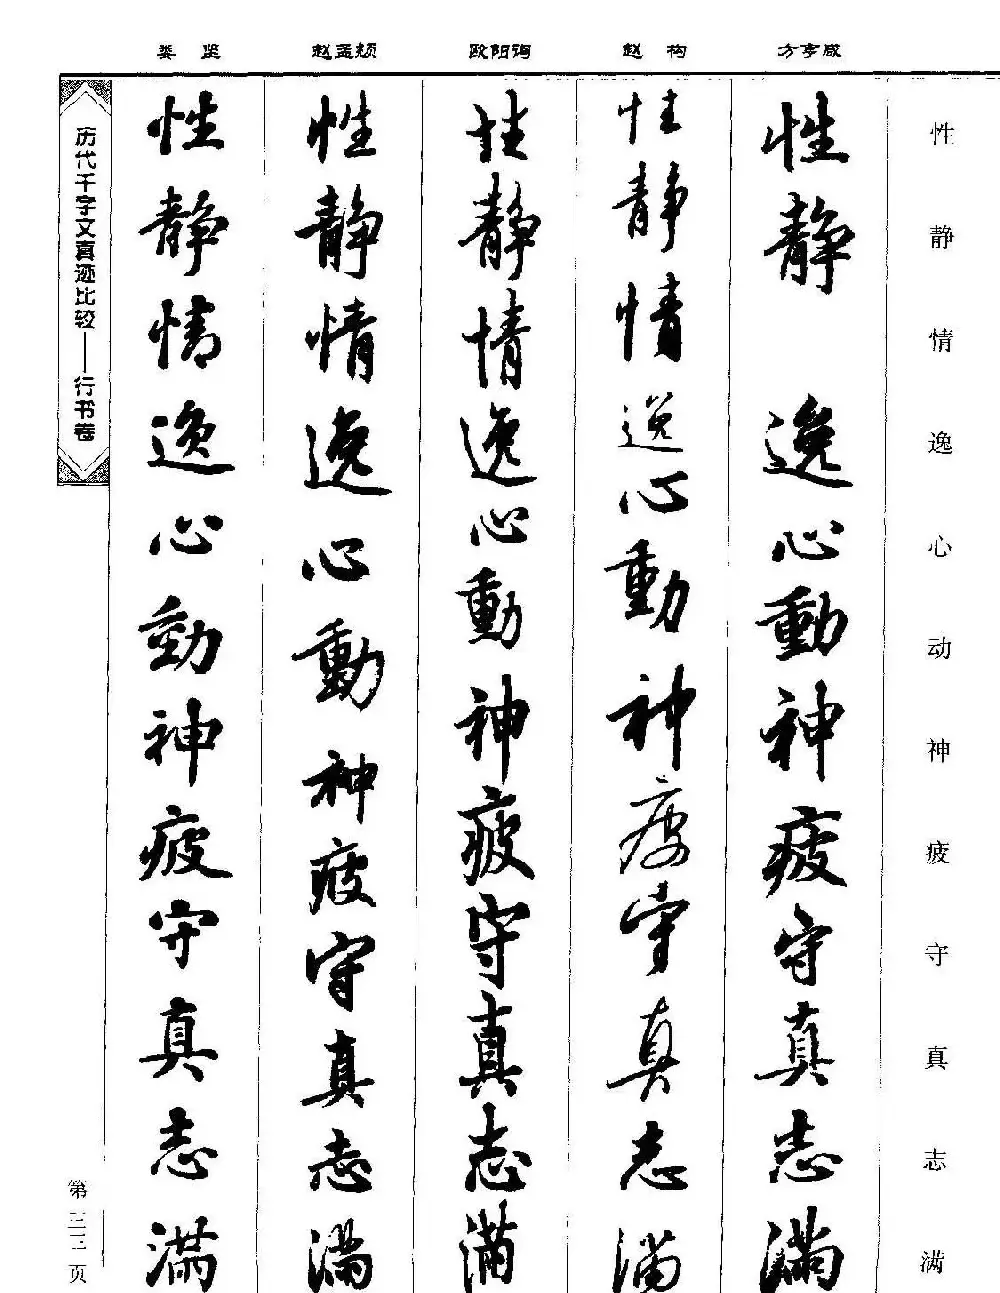 娄坚
赵孟頫
欧阳询
赵构
方亨咸
性静情逸心动神疲守真志满
性静逸心動神疲守真志满
性静情逸心動神疲守真志满
性静情逸心動神疲守真志满
性静情逸心動神疲守真志满
性静情逸心動神疲守真志满
历代千字文真迹比较——行书卷
第三三页